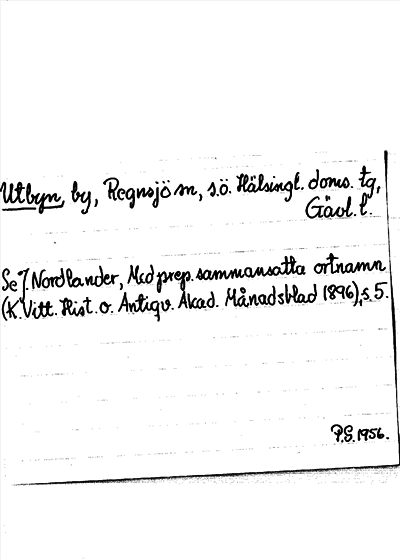 Utbyn, by, Regnsjö sn, s.ö. Hälsingl. doms. tg,
Gävl. l.
Se J. Nordlander, Med prep. sammansatta ortnamn
(K. Vitt. Hist. o. Antiqv. Akad. Månadsblad 1896), s 5.
P.G. 1956.